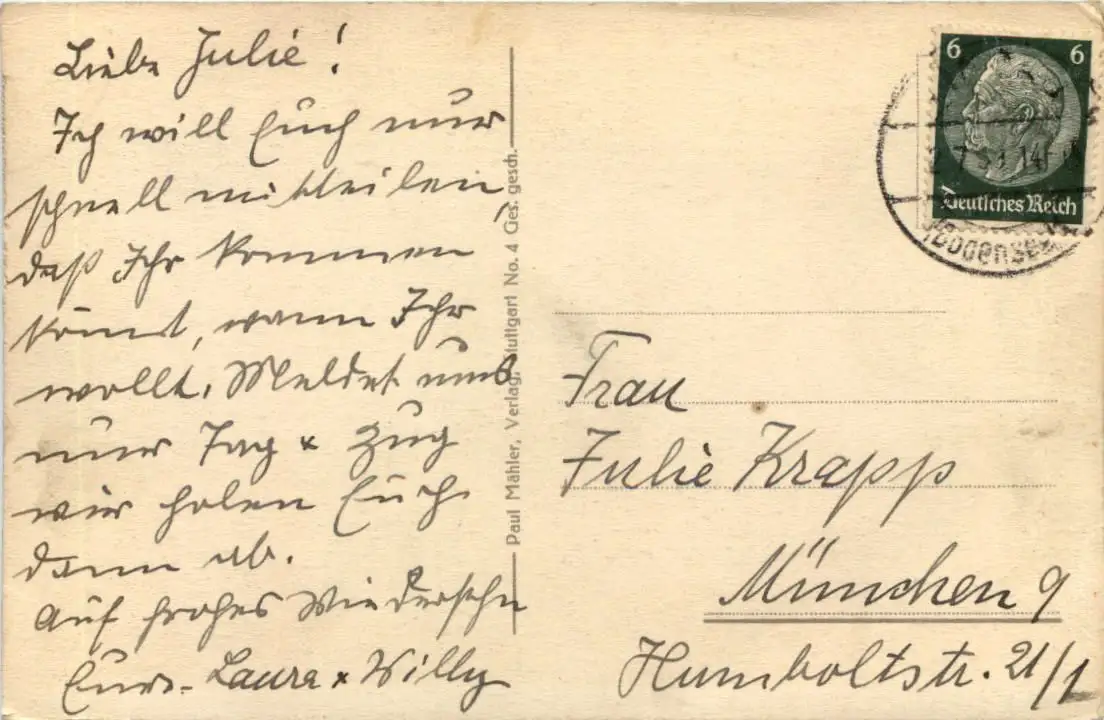 Liebe Julie!
Ich will Euch nur
schnell mitteilen,
daß Ihr kommen
könnt, wann Ihr
wollt. Meldet uns
nur Tag + Zug
wir holen Euch
dann ab.
Auf frohes Wiedersehn
Eure Laura + Willy
Paul Mähler, Verlag, Stuttgart No. 4 Ges. gesch.
6 6
Deutsches Reich
Frau
Julie Krapp
München 9
Humboltstr. 21/1